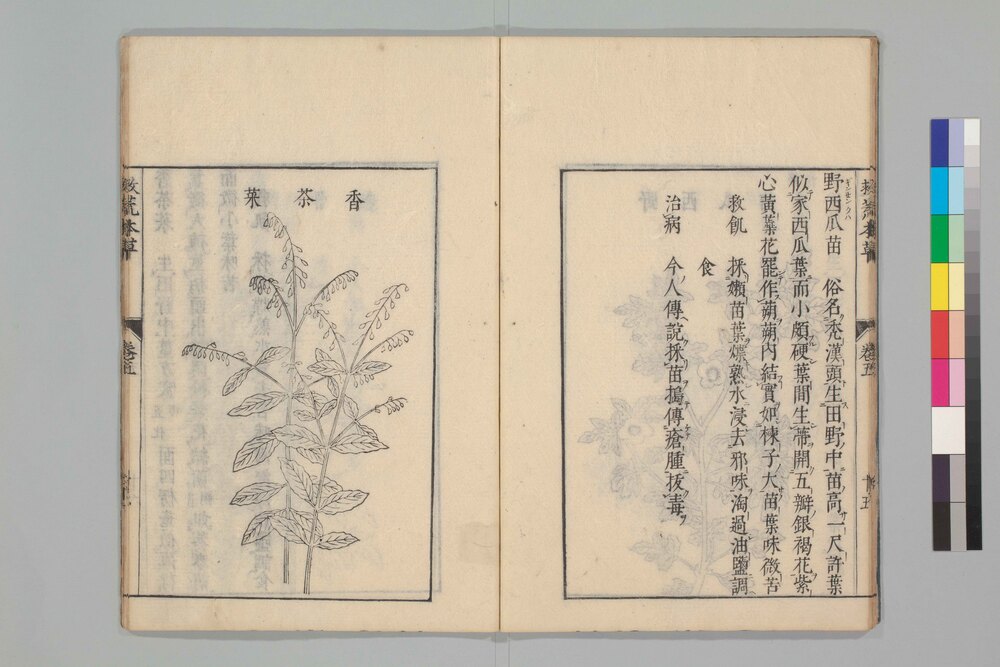 野西瓜苗 俗名禿漢頭生田野中苗高一尺許葉
似家西瓜葉而小頗硬葉間生蒂開五瓣銀褐花紫
心黃蘂花罷作蒴蒴内結實如楝子大苗葉味微苦
救飢 採嫩苗葉煠熟水浸去邪味淘過油鹽調
食
治病 今人傳說採苗搗傅瘡腫拔毒
香茶菜
救荒本草
卷五
救荒本草
卷五